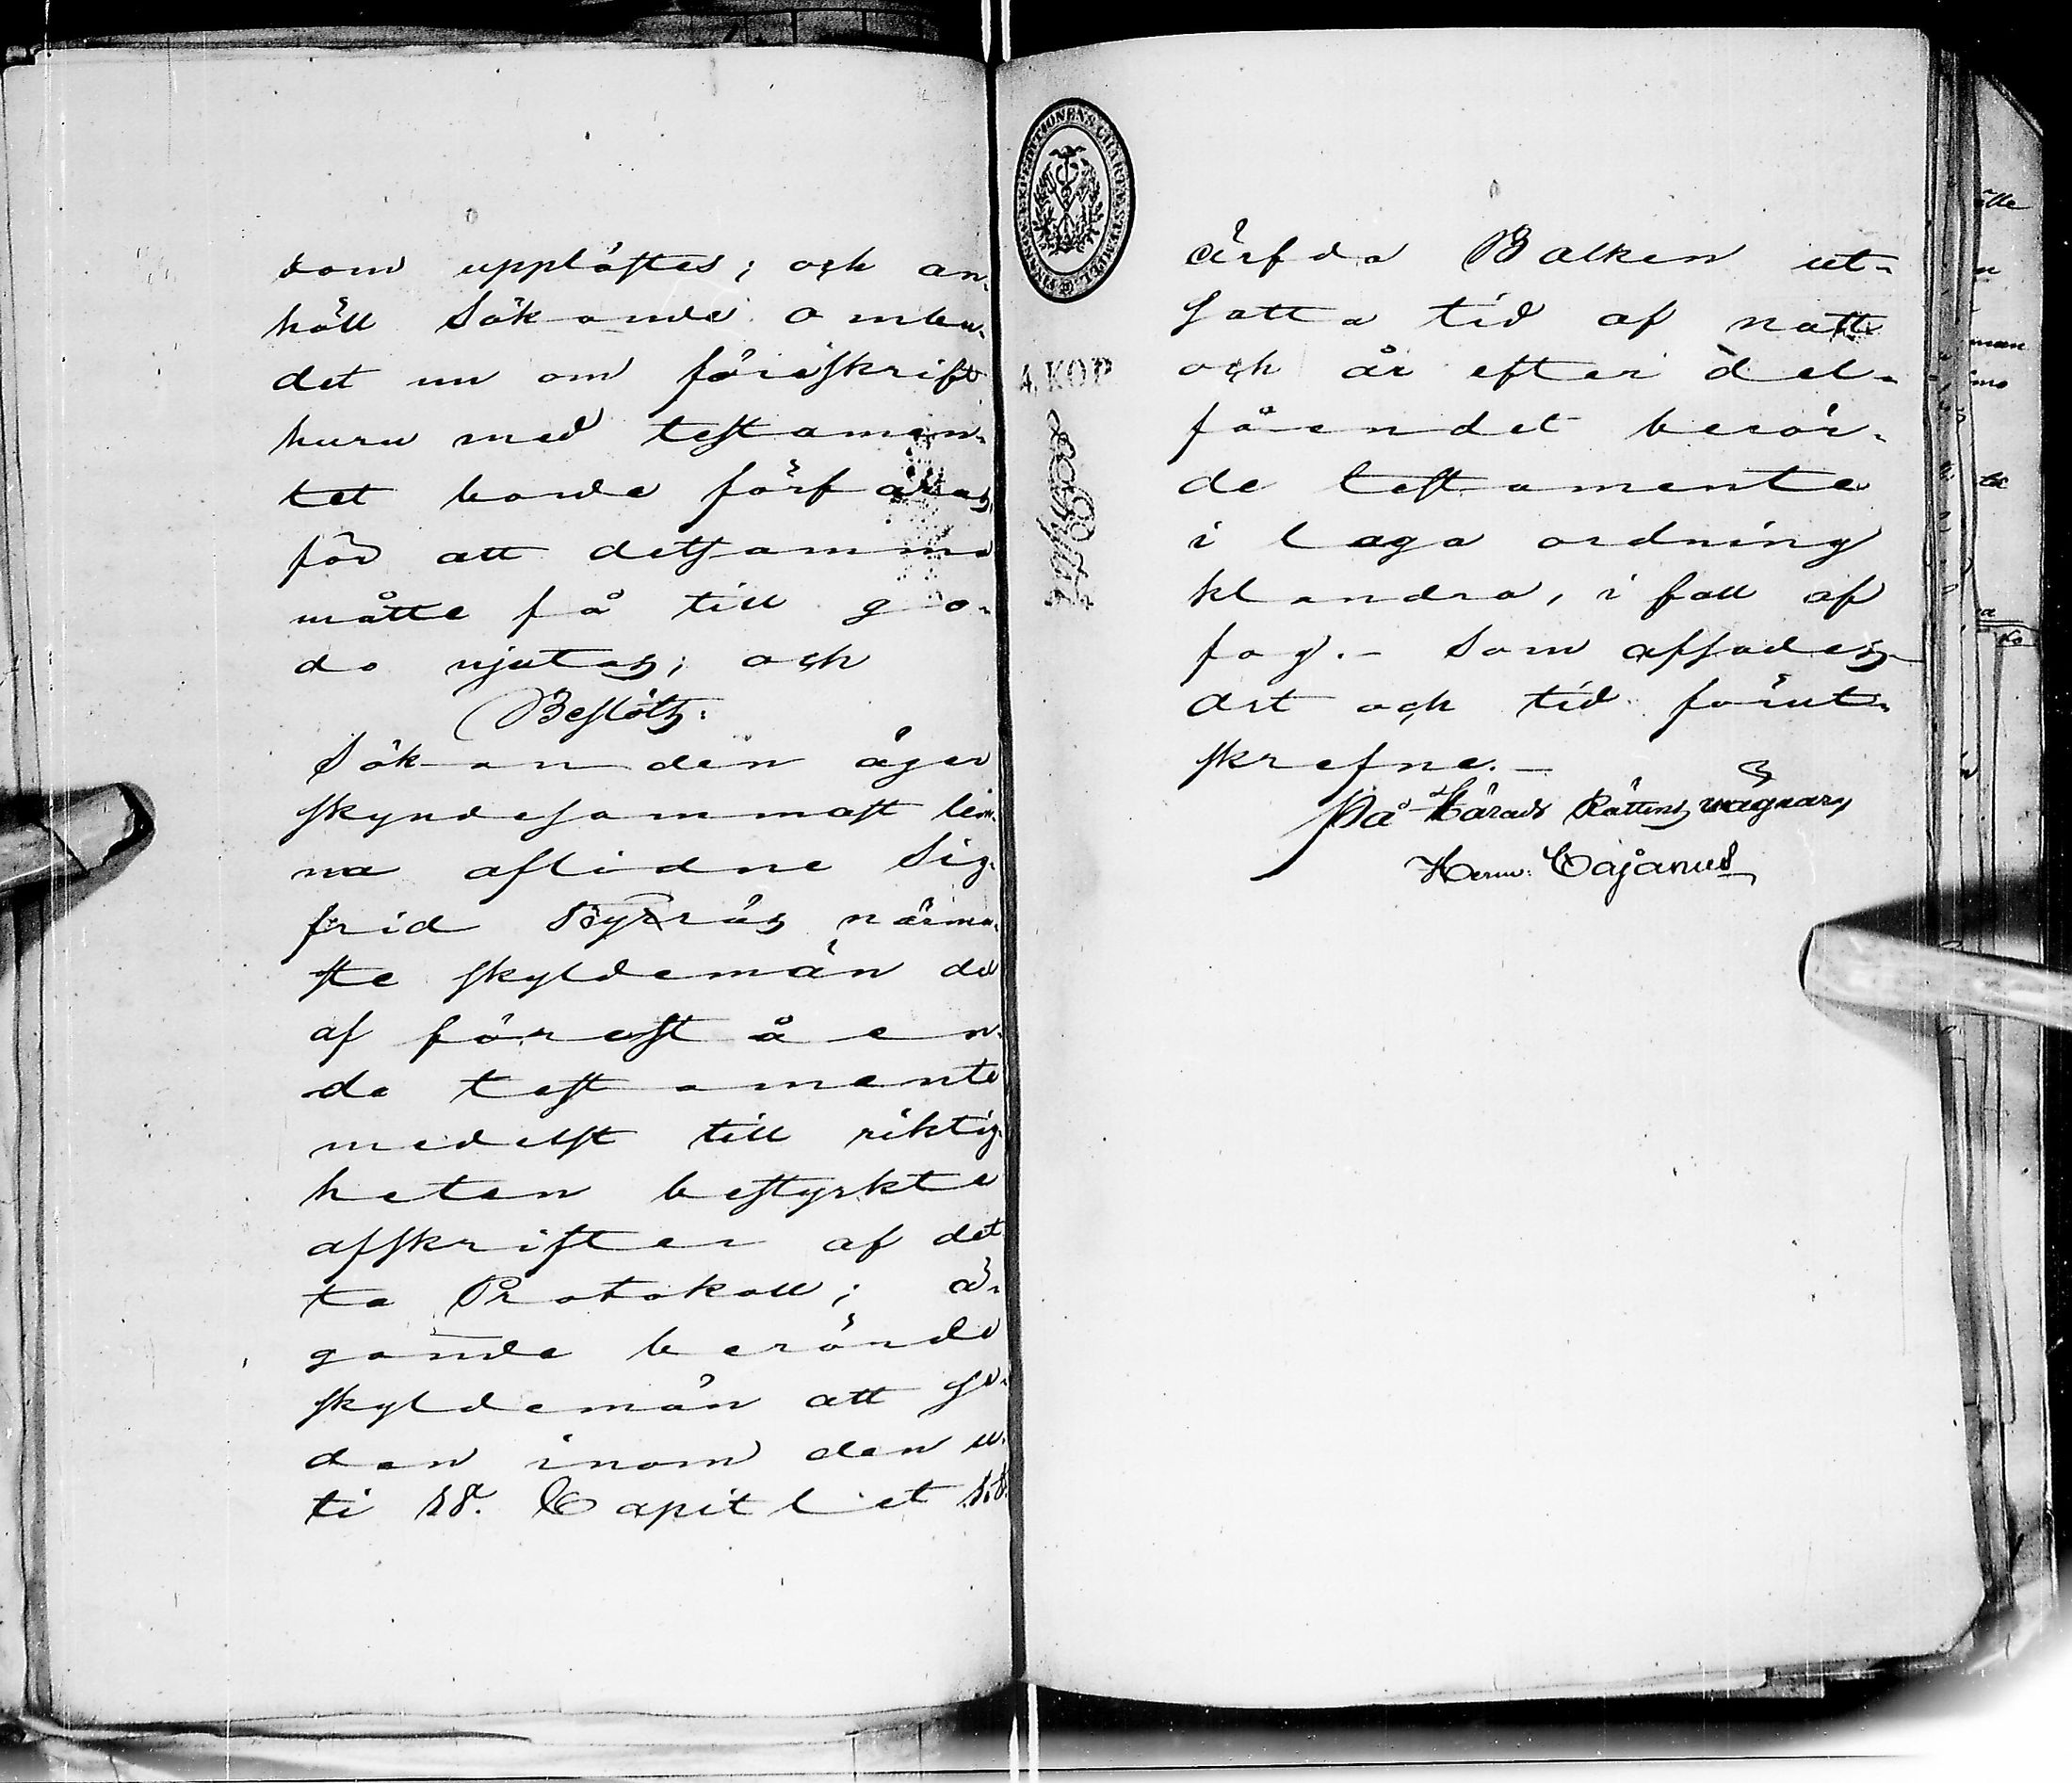 som upplästes; och an-
höll Sökande ombu-
det nu om föreskrift
huru med testamen-
tet borde förfaras,
för att detsamma
måtte få till go-
do njutas; och
Beslöts:
Sökanden äger
skyndesammast läm-
na aflidne Sig-
frid Byrrås närma-
ste skyldemän del
af förestå en-
de testamente
medelst till riktig-
heten bestyrkte
afskrifter af det
ta Protokoll; ä-
gande berörde
skyldemän att se-
dan inom den u-
ti 18. Capitlet
Ärfda Balken ut-
satta tid af natt
och år efter del-
fåendet berör-
de testamente
i laga ordning
klandra, i fall af
fog.- Som afsades
Ort och tid förut-
skrefne.-
På Härads Rättens wägnar,
Herm: Cajanus
FINANCE EXPEDITIONENS CHARTÆ STEMPEL
4 KOP